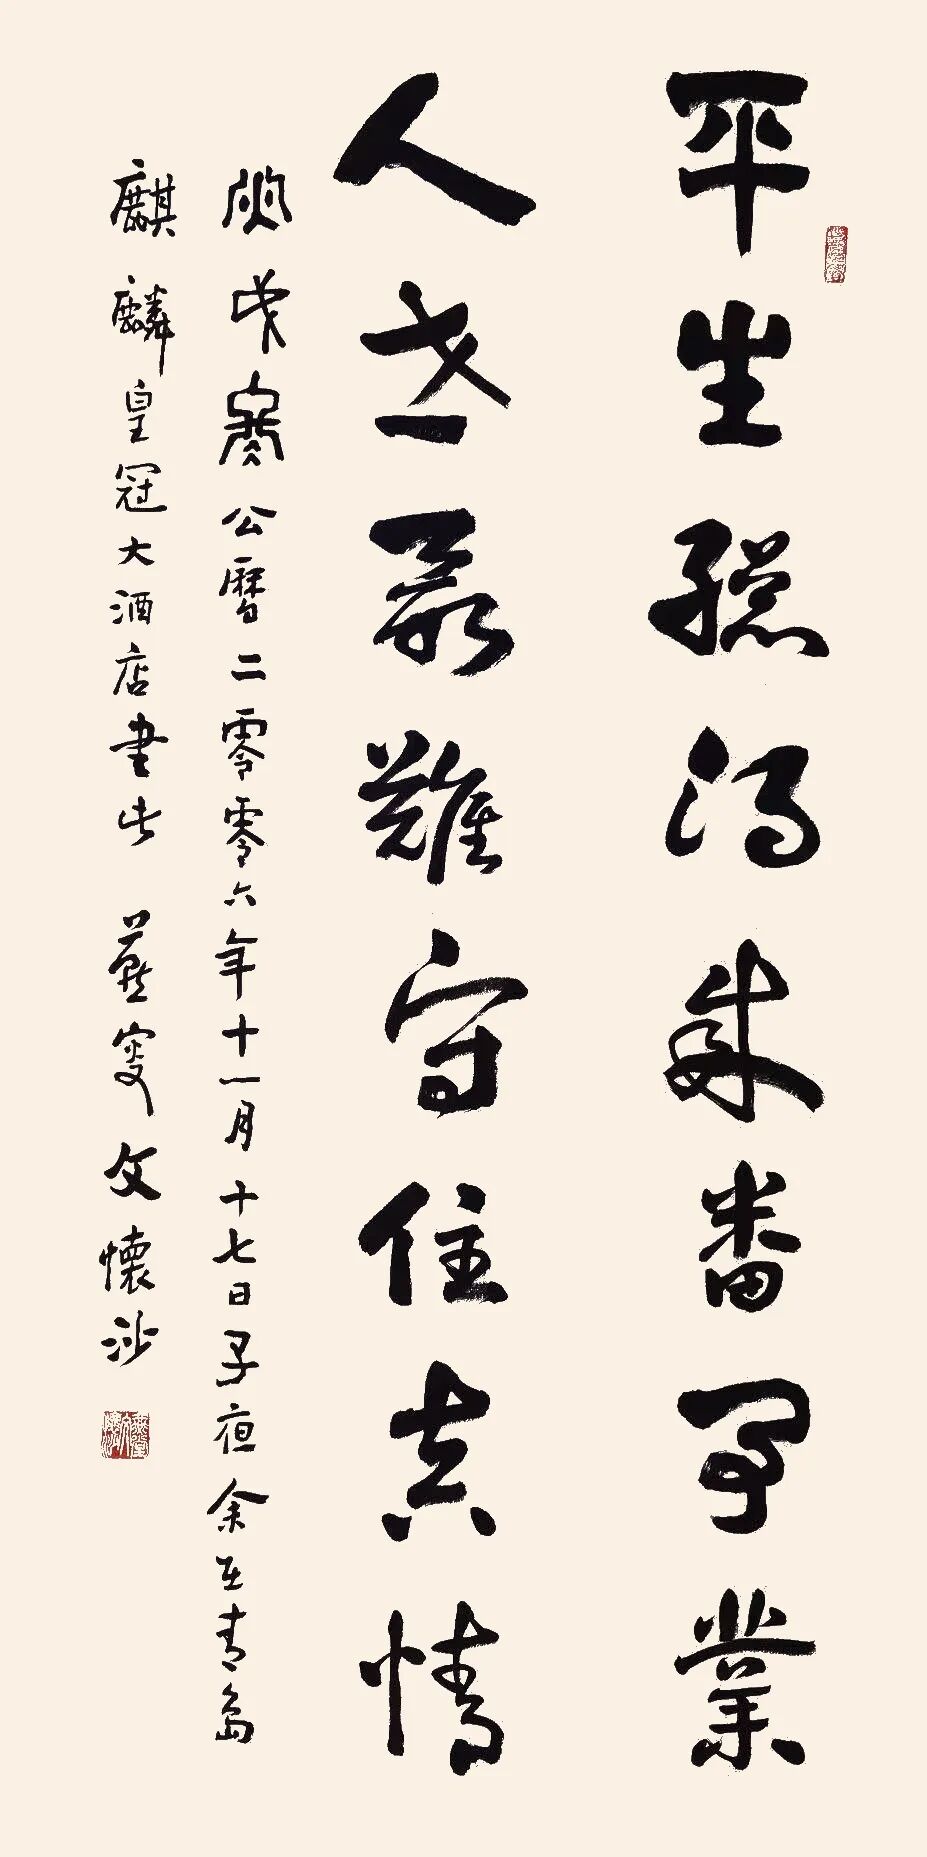 平生總得成番事業
人世最難守住真情
丙戌寒公曆二零零六年十一月十七日子夜余在青島
麒麟皇冠大酒店書此 燕叟文懷沙